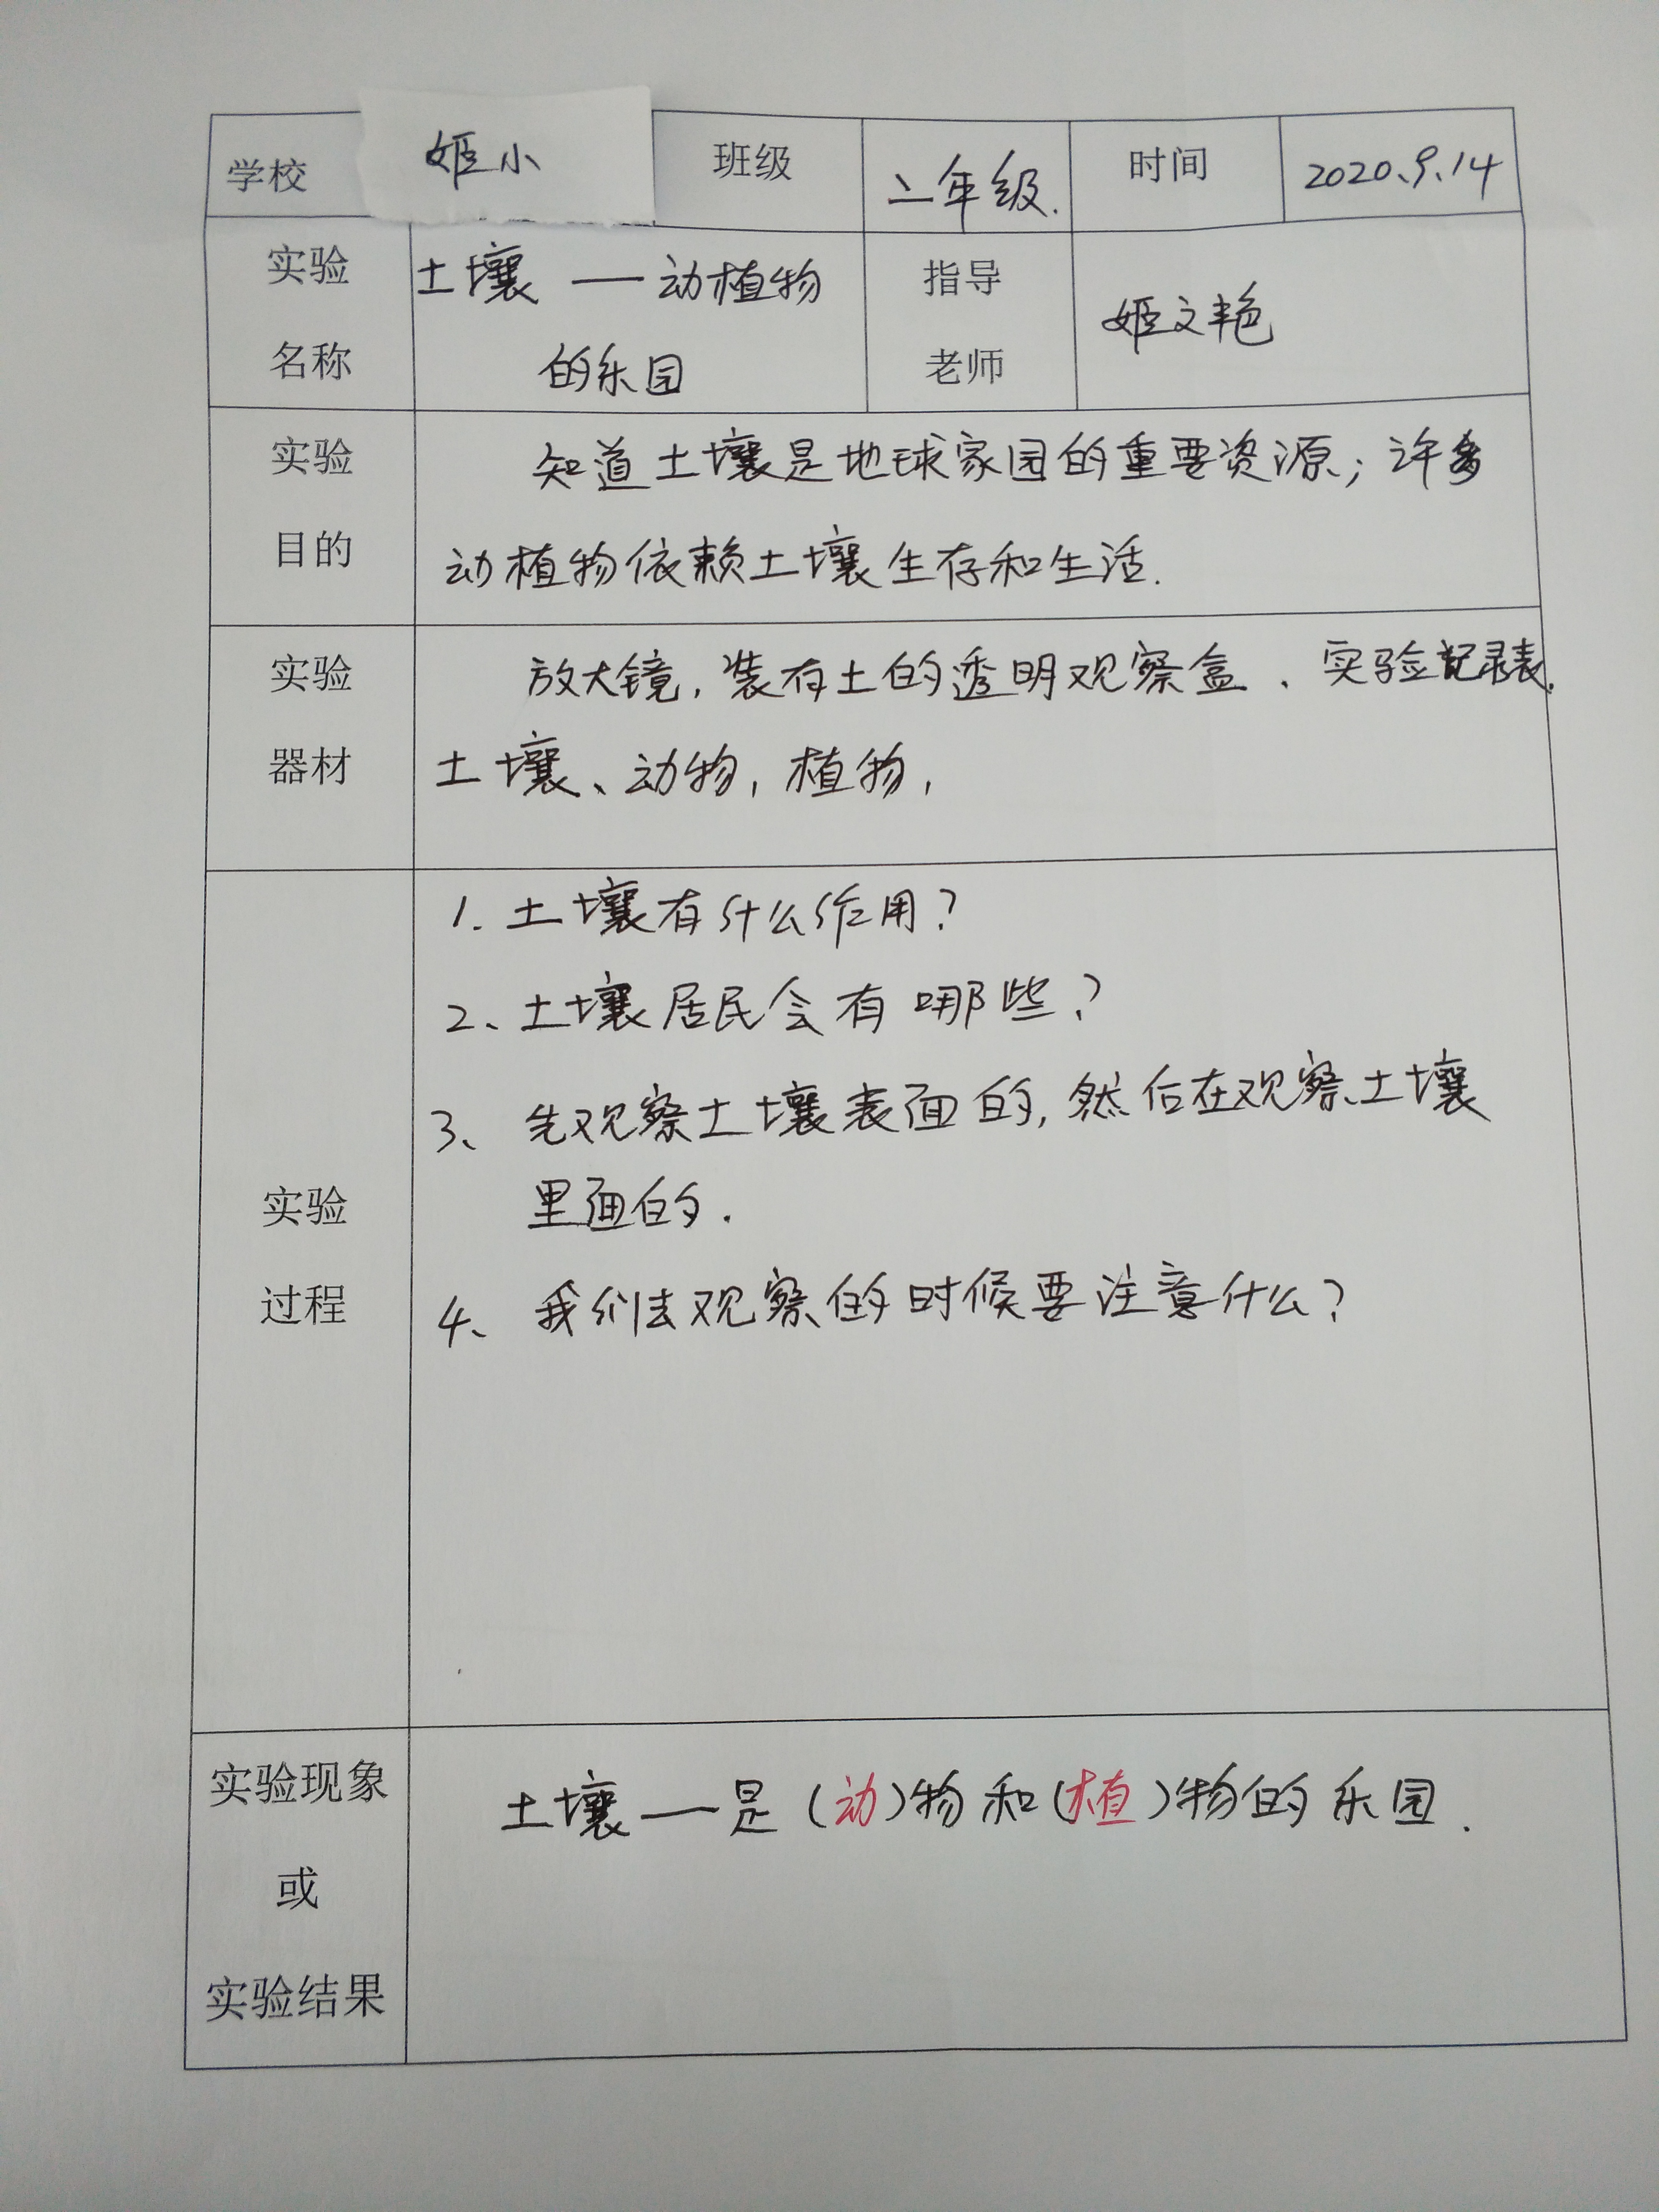 学校 姬小 班级 二年级. 时间 2020.9.14
实验 土壤 — 动植物 指导 姬文艳
名称 的乐园 老师
实验 知道土壤是地球家园的重要资源；许多
目的 动植物依赖土壤生存和生活.
实验 放大镜，装有土的透明观察盒、实验记录表.
器材 土壤、动物，植物，
1. 土壤有什么作用？
2、土壤居民会有哪些？
3、先观察土壤表面的，然后在观察土壤
实验 里面的.
过程 4、我们去观察的时候要注意什么？
实验现象 土壤—是（动）物和（植）物的乐园.
或
实验结果